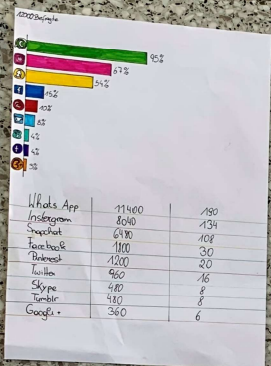 12000 Befragte
95%
67%
54%
15%
10%
8%
4%
4%
3%
Whats App 11400 190
Instergram 8040 134
Snapchat 6480 108
Facebook 1800 30
Pinterest 1200 20
Twitter 960 16
Skype 480 8
Tumblr 480 8
Google+ 360 6